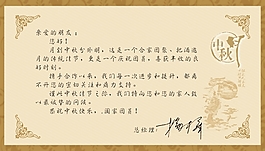 亲爱的朋友：
您好！
月到中秋分外明，这是一个合家团聚、把酒邀
月的传统佳节，更是一个庆祝团圆，喜获丰收的良
好时刻。
携手合作以来，我们每一次进步和提升，都离
不开您的密切关注和鼎力支持。
值此中秋佳节之际，我们特向您和您的家人致
以最诚挚的问候。
恭祝中秋快乐、阖家团圆！
总经理：
中秋